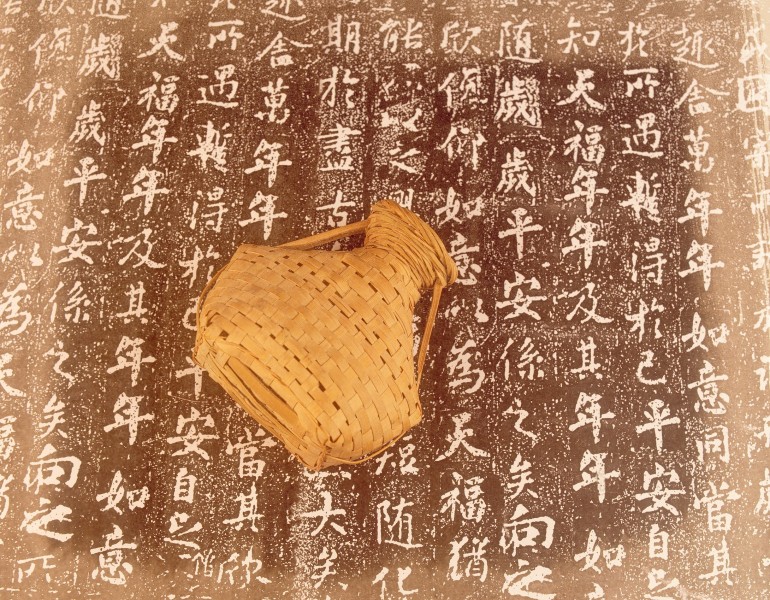 因寄
趣舍萬年年如意同當其
於所遇暫得於己平安自足
知天福年年及其年年如
随歲歲平安係之矣向之
欣俛仰如意以為天福猶
能之短随化
期於盡古大矣
趣舍萬年年當其欣
所遇暫得於平安自足
天福年年及其年年如意
随歲歲平安係之矣向之所
俛仰如意以為天福